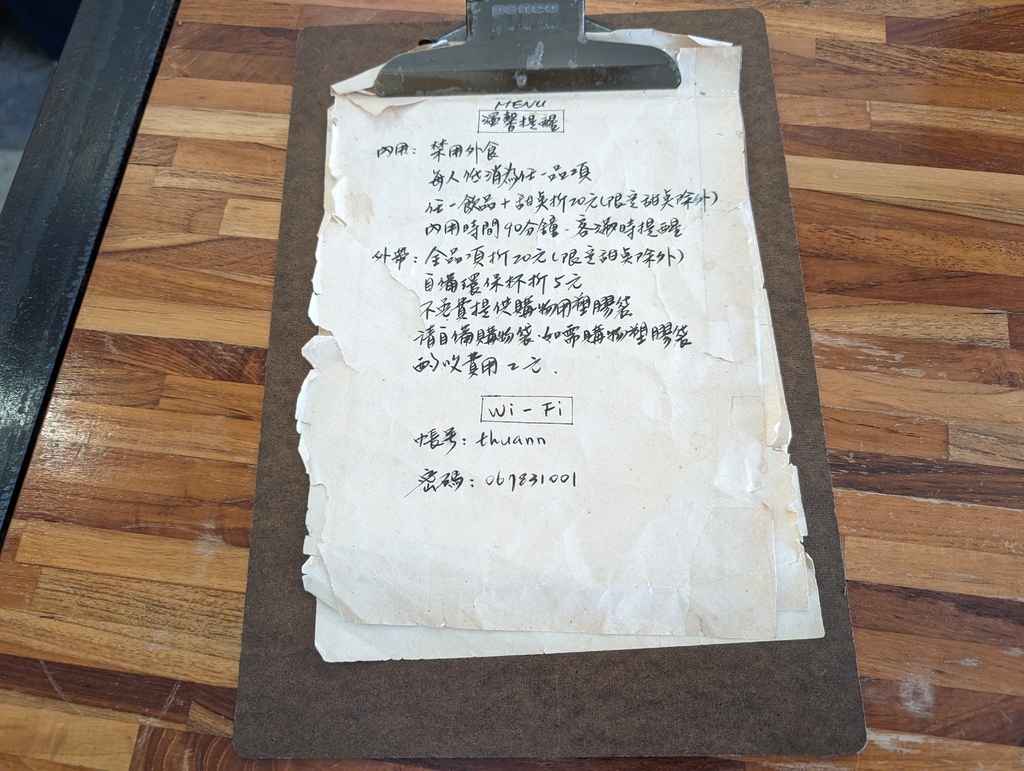 penco
MENU
溫馨提醒
內用: 禁用外食
每人低消為任一品項
任一飲品+甜點折20元(限定甜點除外)
內用時間90分鐘.客滿時提醒
外帶: 全品項折20元(限定甜點除外)
自備環保杯折5元
不免費提供購物用塑膠袋
請自備購物袋.如需購物塑膠袋
酌收費用2元.
Wi-Fi
帳號: thuann
密碼: 067831001